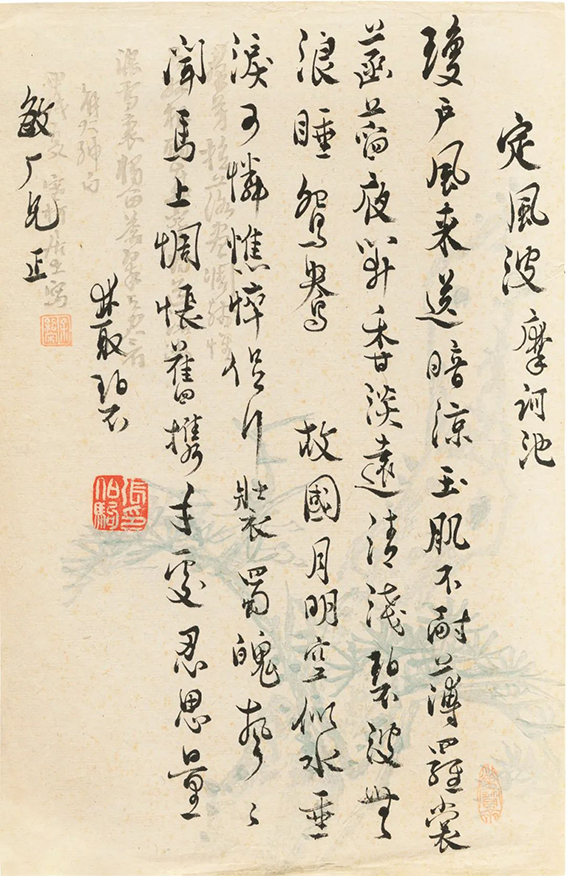 定風波 摩訶池
瓊戶風来送暗涼玉肌不耐薄羅裳
菡萏夜開香淡遠清淺碧波無
浪睡鴛鴦 故國月明空似水垂
淚可憐憔悴促行裝蜀魄聲〻
聞馬上惆悵舊攜手處忍思量
叢碧
敏厂兄正
張印伯駒